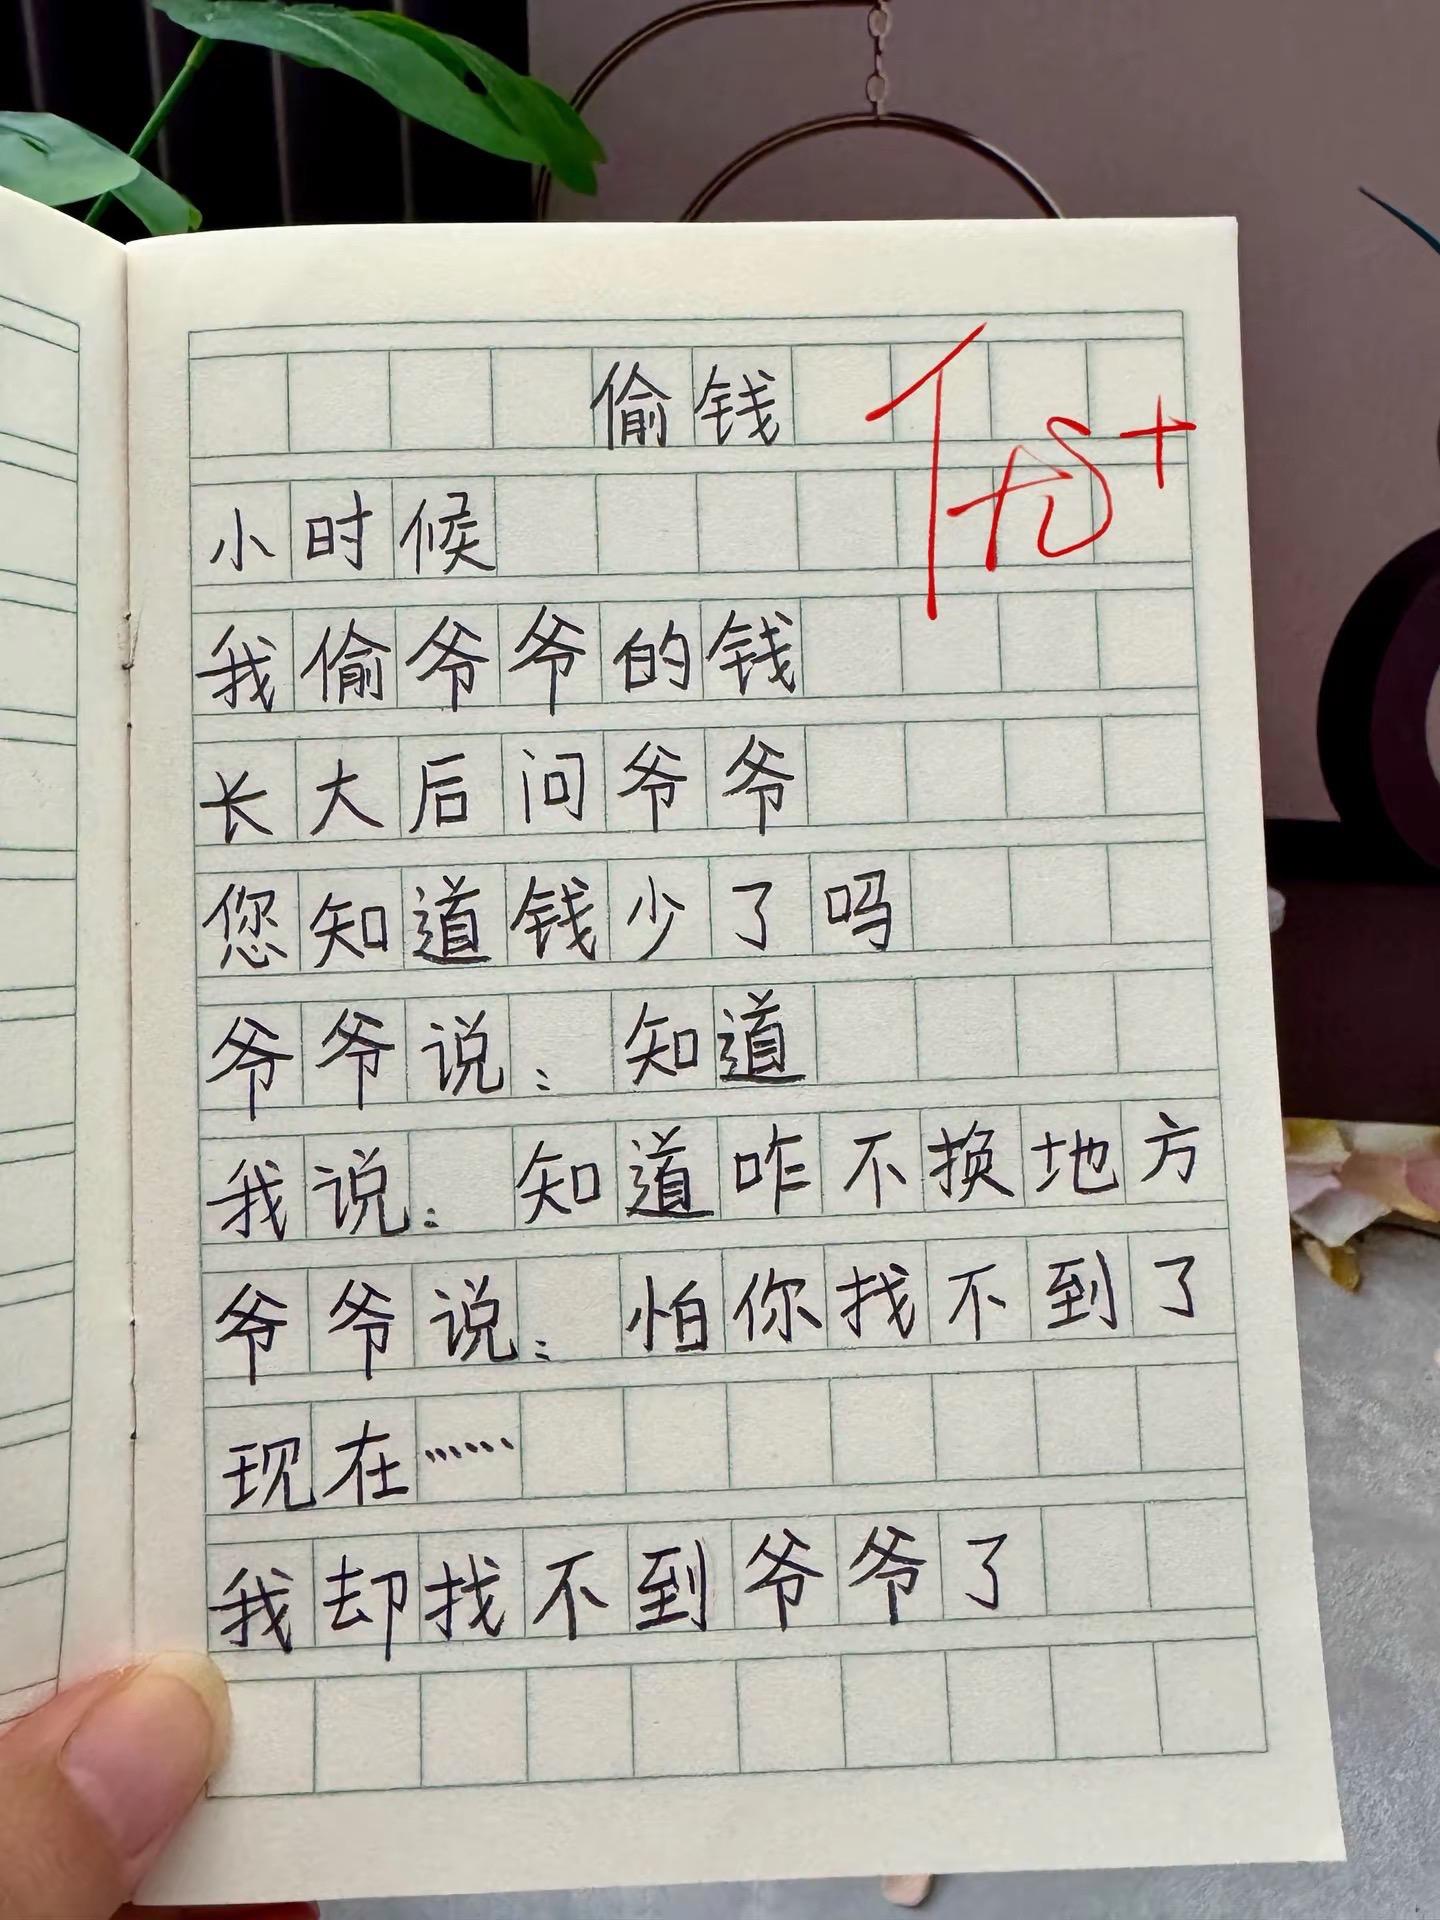 偷钱
小时候
我偷爷爷的钱
长大后问爷爷
您知道钱少了吗
爷爷说：知道
我说：知道咋不换地方
爷爷说：怕你找不到了
现在……
我却找不到爷爷了